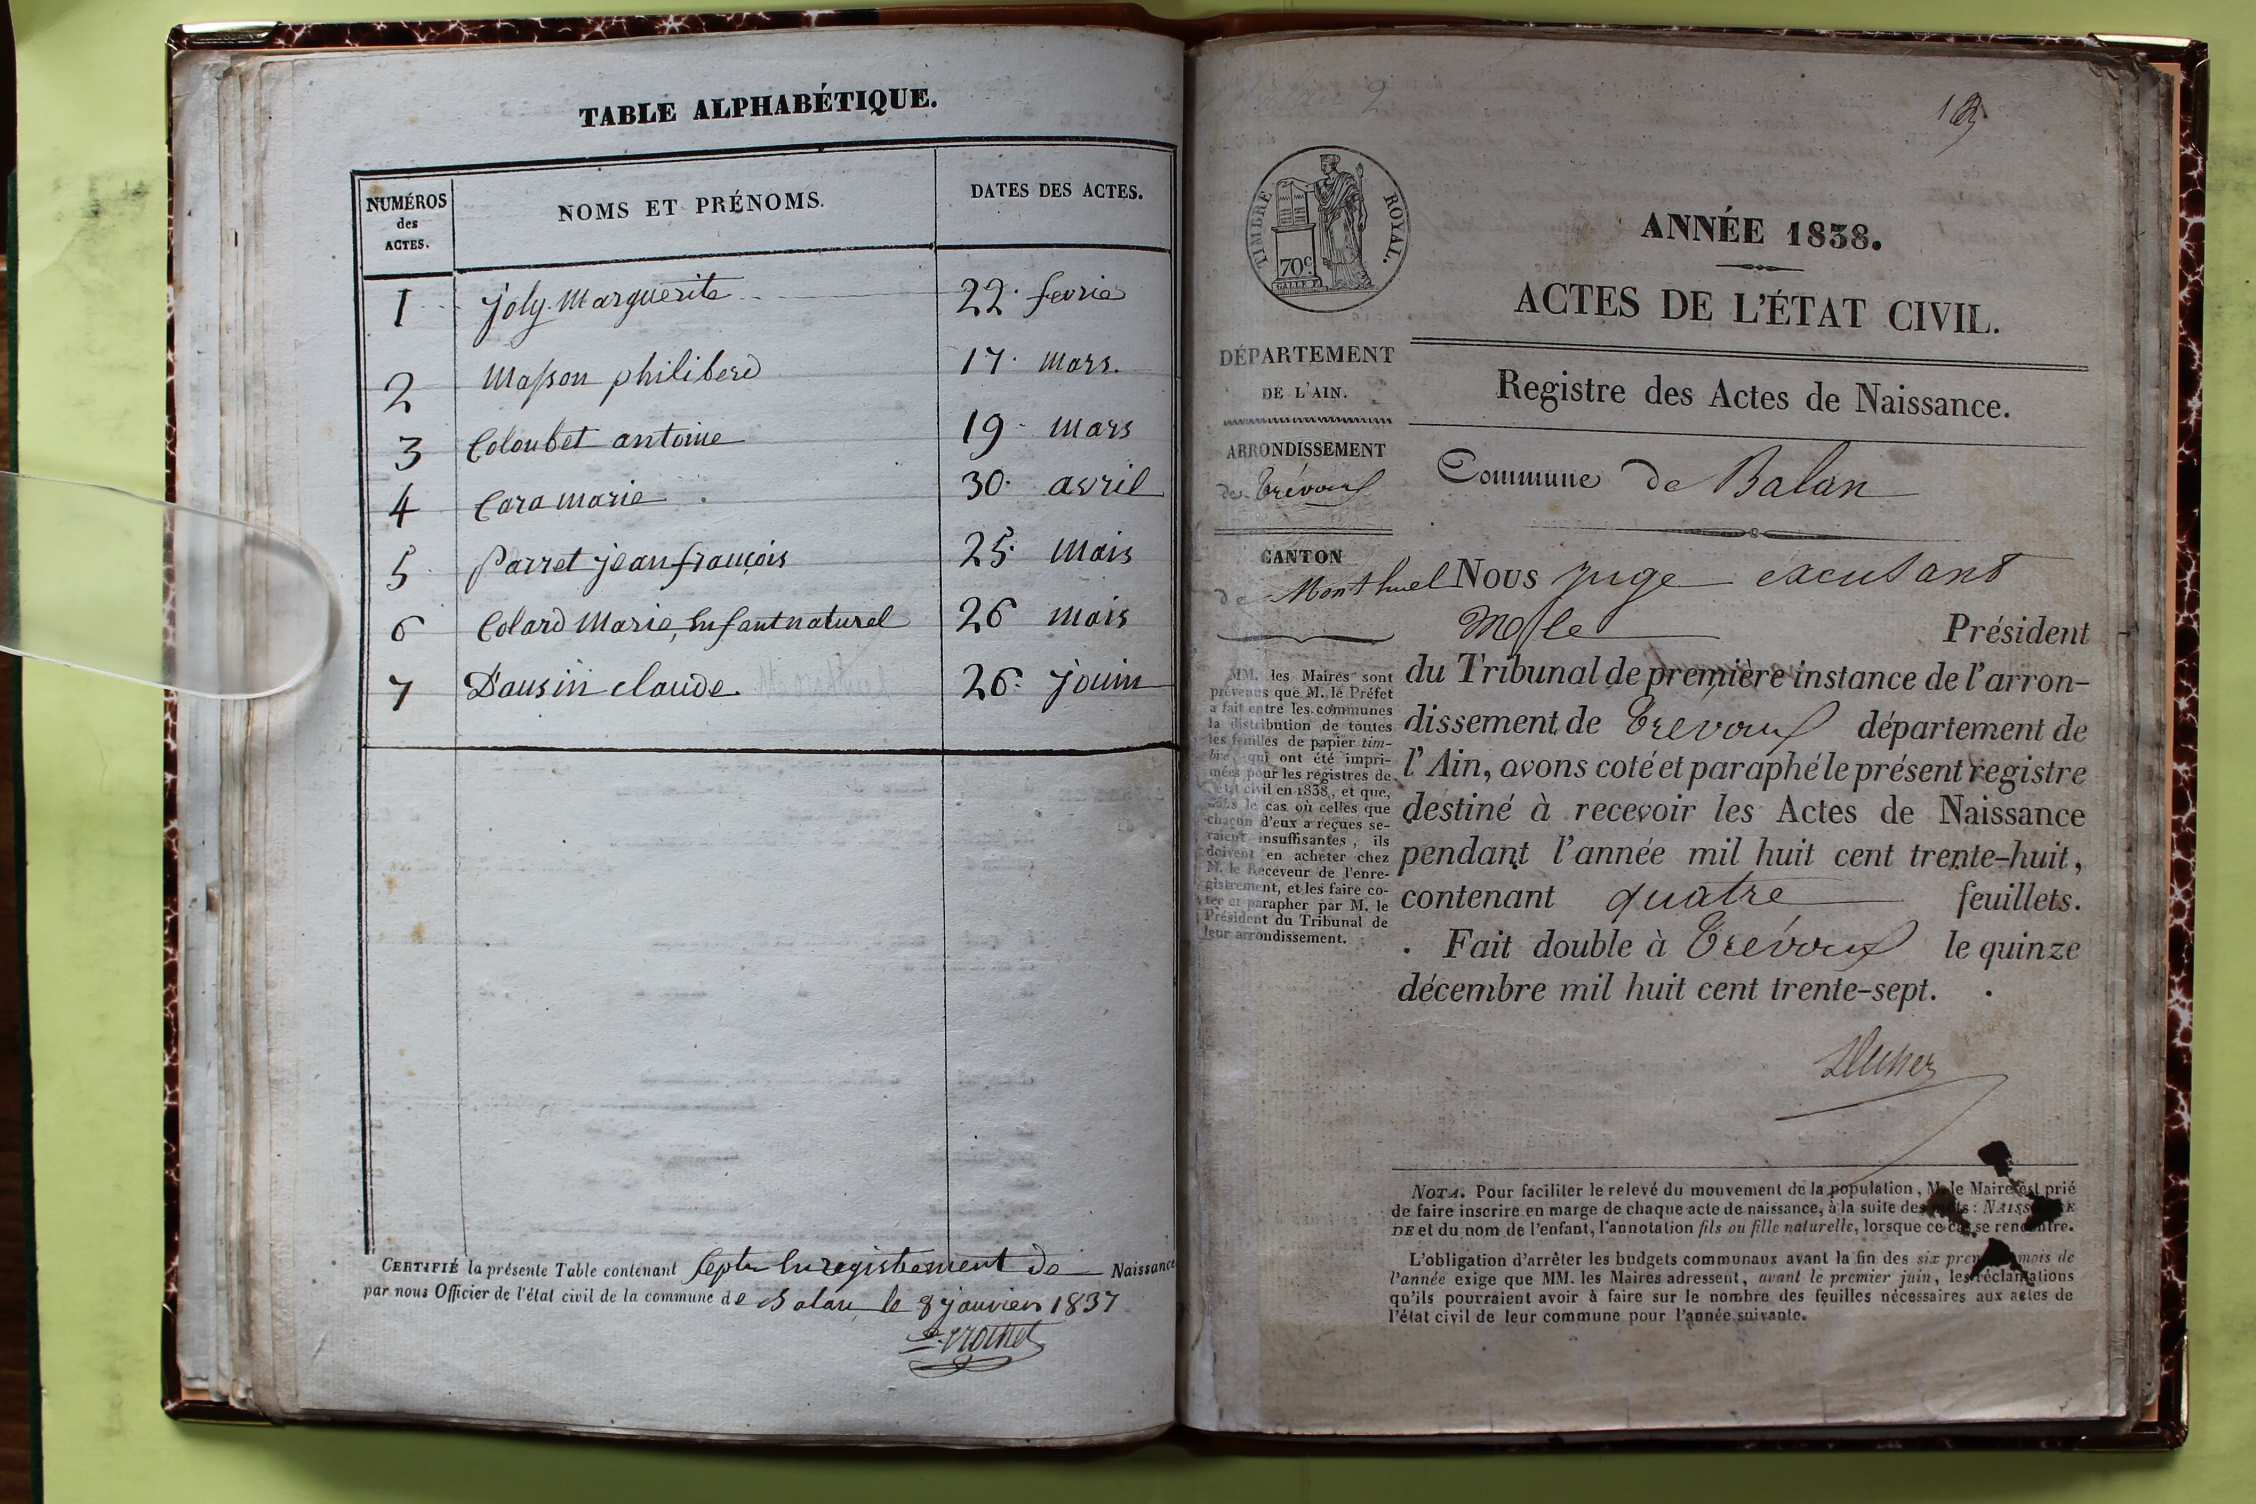 TABLE ALPHABÉTIQUE.
NUMÉROS des ACTES.
NOMS ET PRÉNOMS.
DATES DES ACTES.
1 Joly Marguerite 22 fevrie
2 Masson philiberd 17 mars.
3 Coloubet antoine 19 mars
4 Cara marie 30 avril
5 Parret jean françois 25 mais
6 Colard Marie, Enfant naturel 26 mais
7 Dausin claude 26 jouin
CERTIFIÉ la présente Table contenant Septe Enregistrement de Naissance
par nous Officier de l'état civil de la commune de Balan le 8 janvier 1837
2
TIMBRE ROYAL.
70 c.
ANNÉE 1838.
ACTES DE L'ÉTAT CIVIL.
DÉPARTEMENT
DE L'AIN.
Registre des Actes de Naissance.
ARRONDISSEMENT
de Trévoux
Commune de Balan
CANTON
de Montluel
Nous juge excusant
Mr le Président
du Tribunal de première instance de l'arron-
dissement de Trévoux département de
l'Ain, avons coté et paraphé le présent registre
destiné à recevoir les Actes de Naissance
pendant l'année mil huit cent trente-huit,
contenant quatre feuillets.
Fait double à Trévoux le quinze
décembre mil huit cent trente-sept.
MM. les Maires sont
prévenus que M. le Préfet
a fait entre les communes
la distribution de toutes
les feuilles de papier tim-
bré qui ont été impri-
mées pour les registres de
l'état civil en 1838, et que,
dans le cas où celles que
chacun d'eux a reçues se-
raient insuffisantes, ils
doivent en acheter chez
M. le Receveur de l'enre-
gistrement, et les faire co-
ter et parapher par M. le
Président du Tribunal de
leur arrondissement.
NOTA. Pour faciliter le relevé du mouvement de la population, M. le Maire est prié
de faire inscrire en marge de chaque acte de naissance, à la suite des mots : NAISSANCE
DE et du nom de l'enfant, l'annotation fils ou fille naturelle, lorsque ce cas se rencontre.
L'obligation d'arrêter les budgets communaux avant la fin des six premiers mois de
l'année exige que MM. les Maires adressent, avant le premier juin, les réclamations
qu'ils pourraient avoir à faire sur le nombre des feuilles nécessaires aux actes de
l'état civil de leur commune pour l'année suivante.